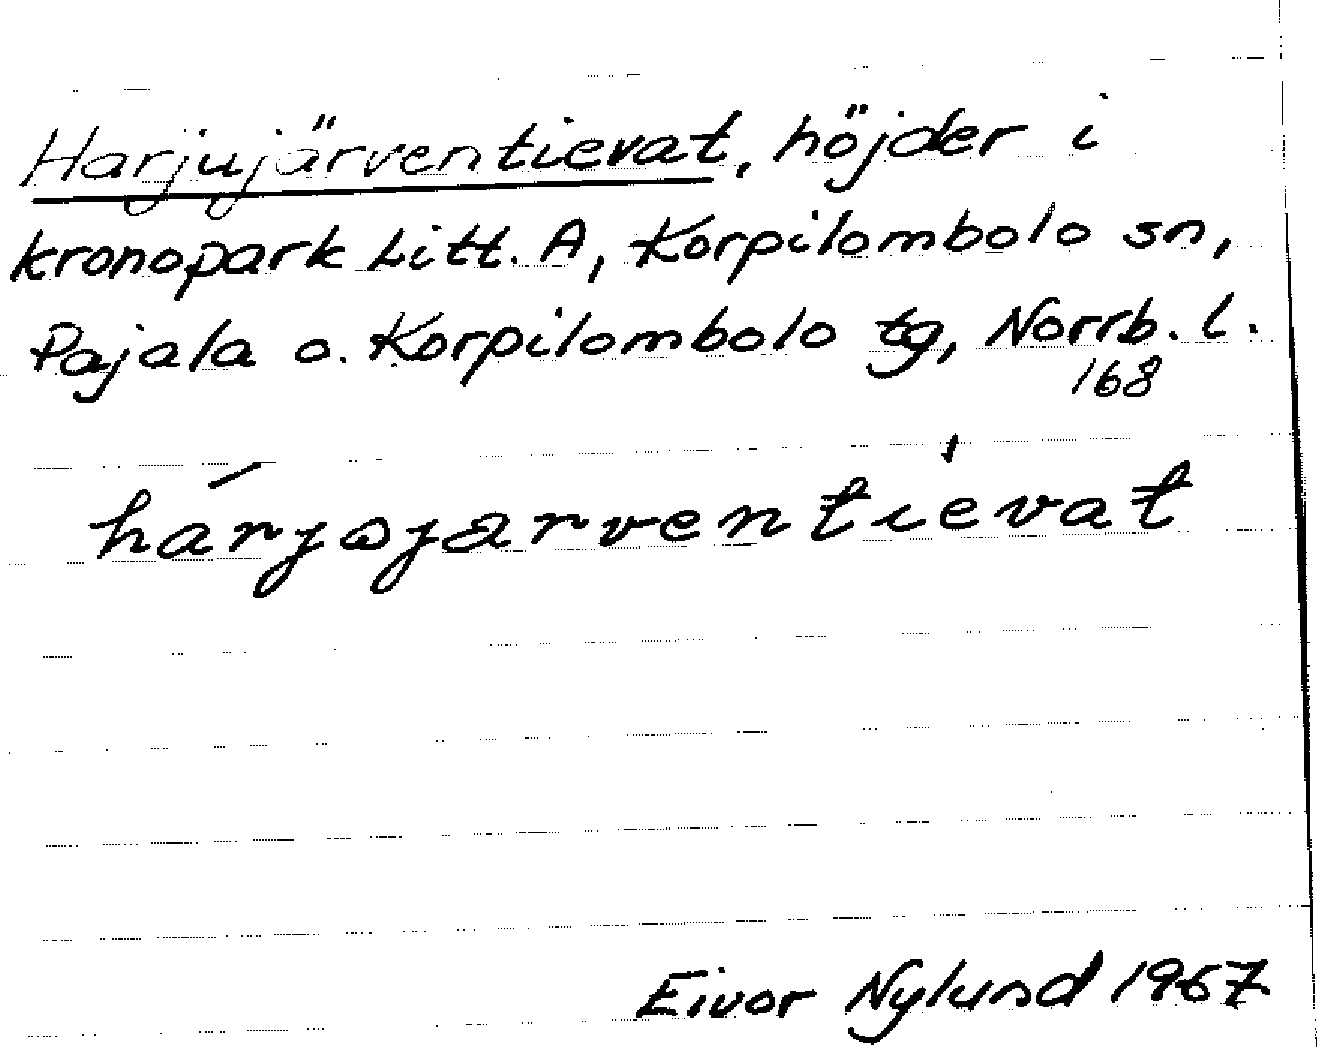 Harjujärventievat, höjder i
kronopark Litt. A, Korpilombolo sn,
Pajala o. Korpilombolo tg, Norrb. l.
168
hárjωjarventiévat
Eivor Nylund 1967